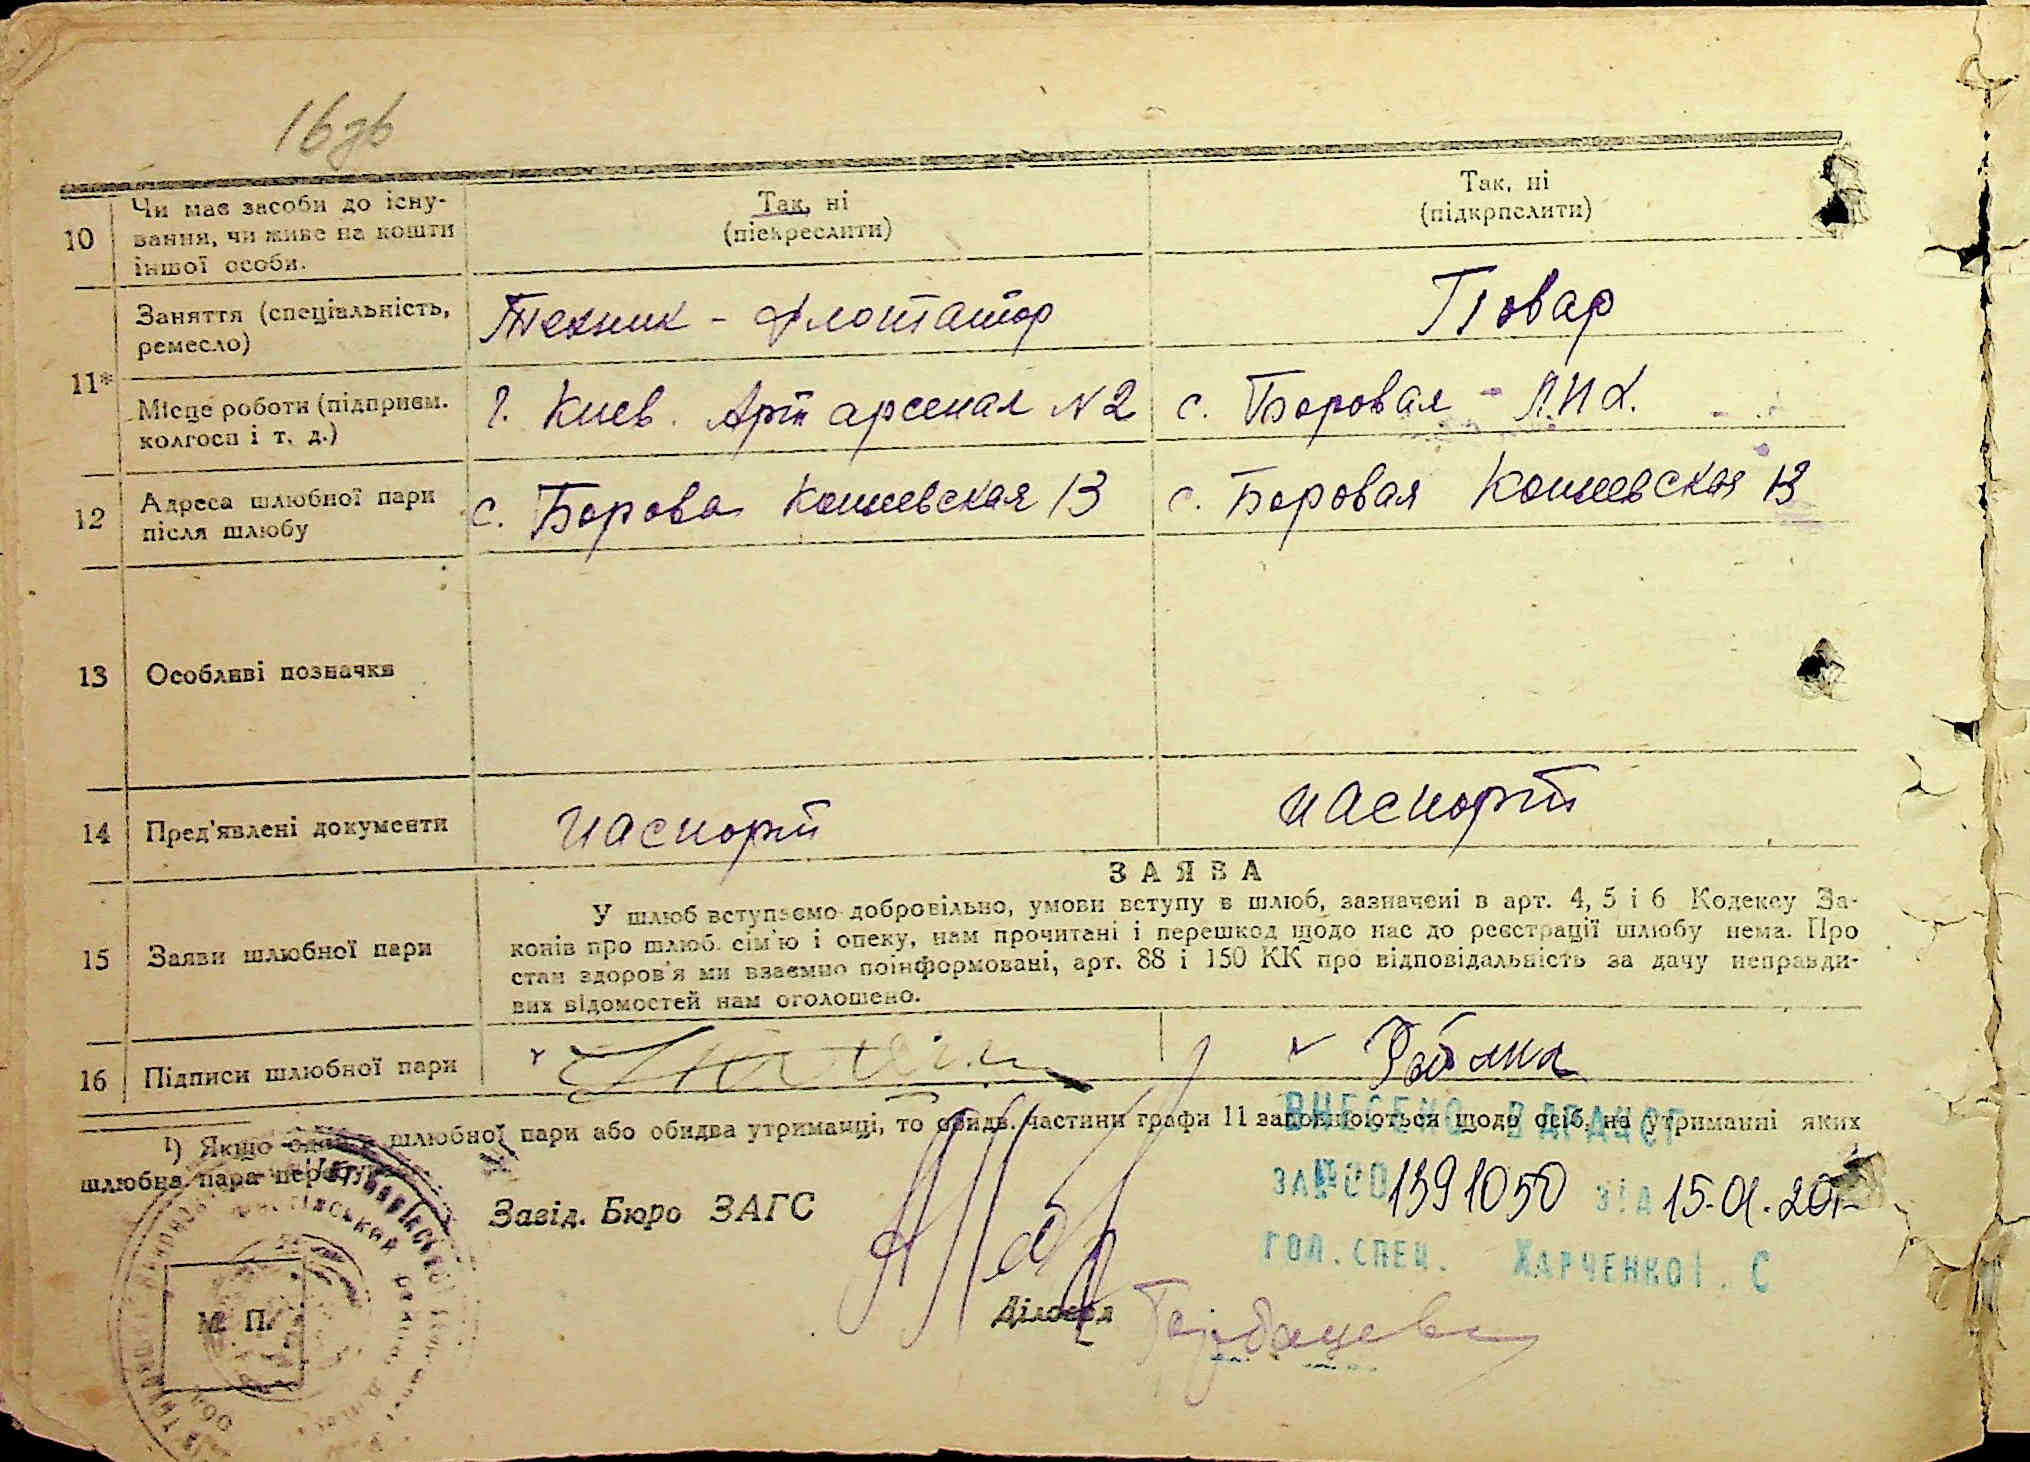 16зв
10
Чи має засоби до існу-
вання, чи живе на кошти
іншої особи.
Так, ні
(підкреслити)
Так, ні
(підкреслити)
11*
Заняття (спеціальність,
ремесло)
Техник - флотатор
Повар
Місце роботи (підприєм.
колгосп і т. д.)
г. Киев. Арт арсенал №2
с. Боровая -
12
Адреса шлюбної пари
після шлюбу
с. Борова 13
с. Боровая 13
13
Особливі позначки
14
Пред'явлені документи
паспорт
паспорт
15
Заяви шлюбної пари
ЗАЯВА
У шлюб вступаємо добровільно, умови вступу в шлюб, зазначені в арт. 4, 5 і 6 Кодексу За-
конів про шлюб. сім'ю і опеку, нам прочитані і перешкод щодо нас до реєстрації шлюбу нема. Про
стан здоров'я ми взаємно поінформовані, арт. 88 і 150 КК про відповідальність за дачу неправди-
вих відомостей нам оголошено.
16
Підписи шлюбної пари
¹) Якщо один з шлюбної пари або обидва утриманці, то обидв. частини графи 11 заповнюються щодо осіб, на утриманні яких
шлюбна пара перебуває.
ВНЕСЕНО В ДРАЦСГ
ЗА №00 1391050 від 15.01.20
ГОЛ. СПЕЦ. ХАРЧЕНКО І. С
Завід. Бюро ЗАГС
Діловод
М. П.